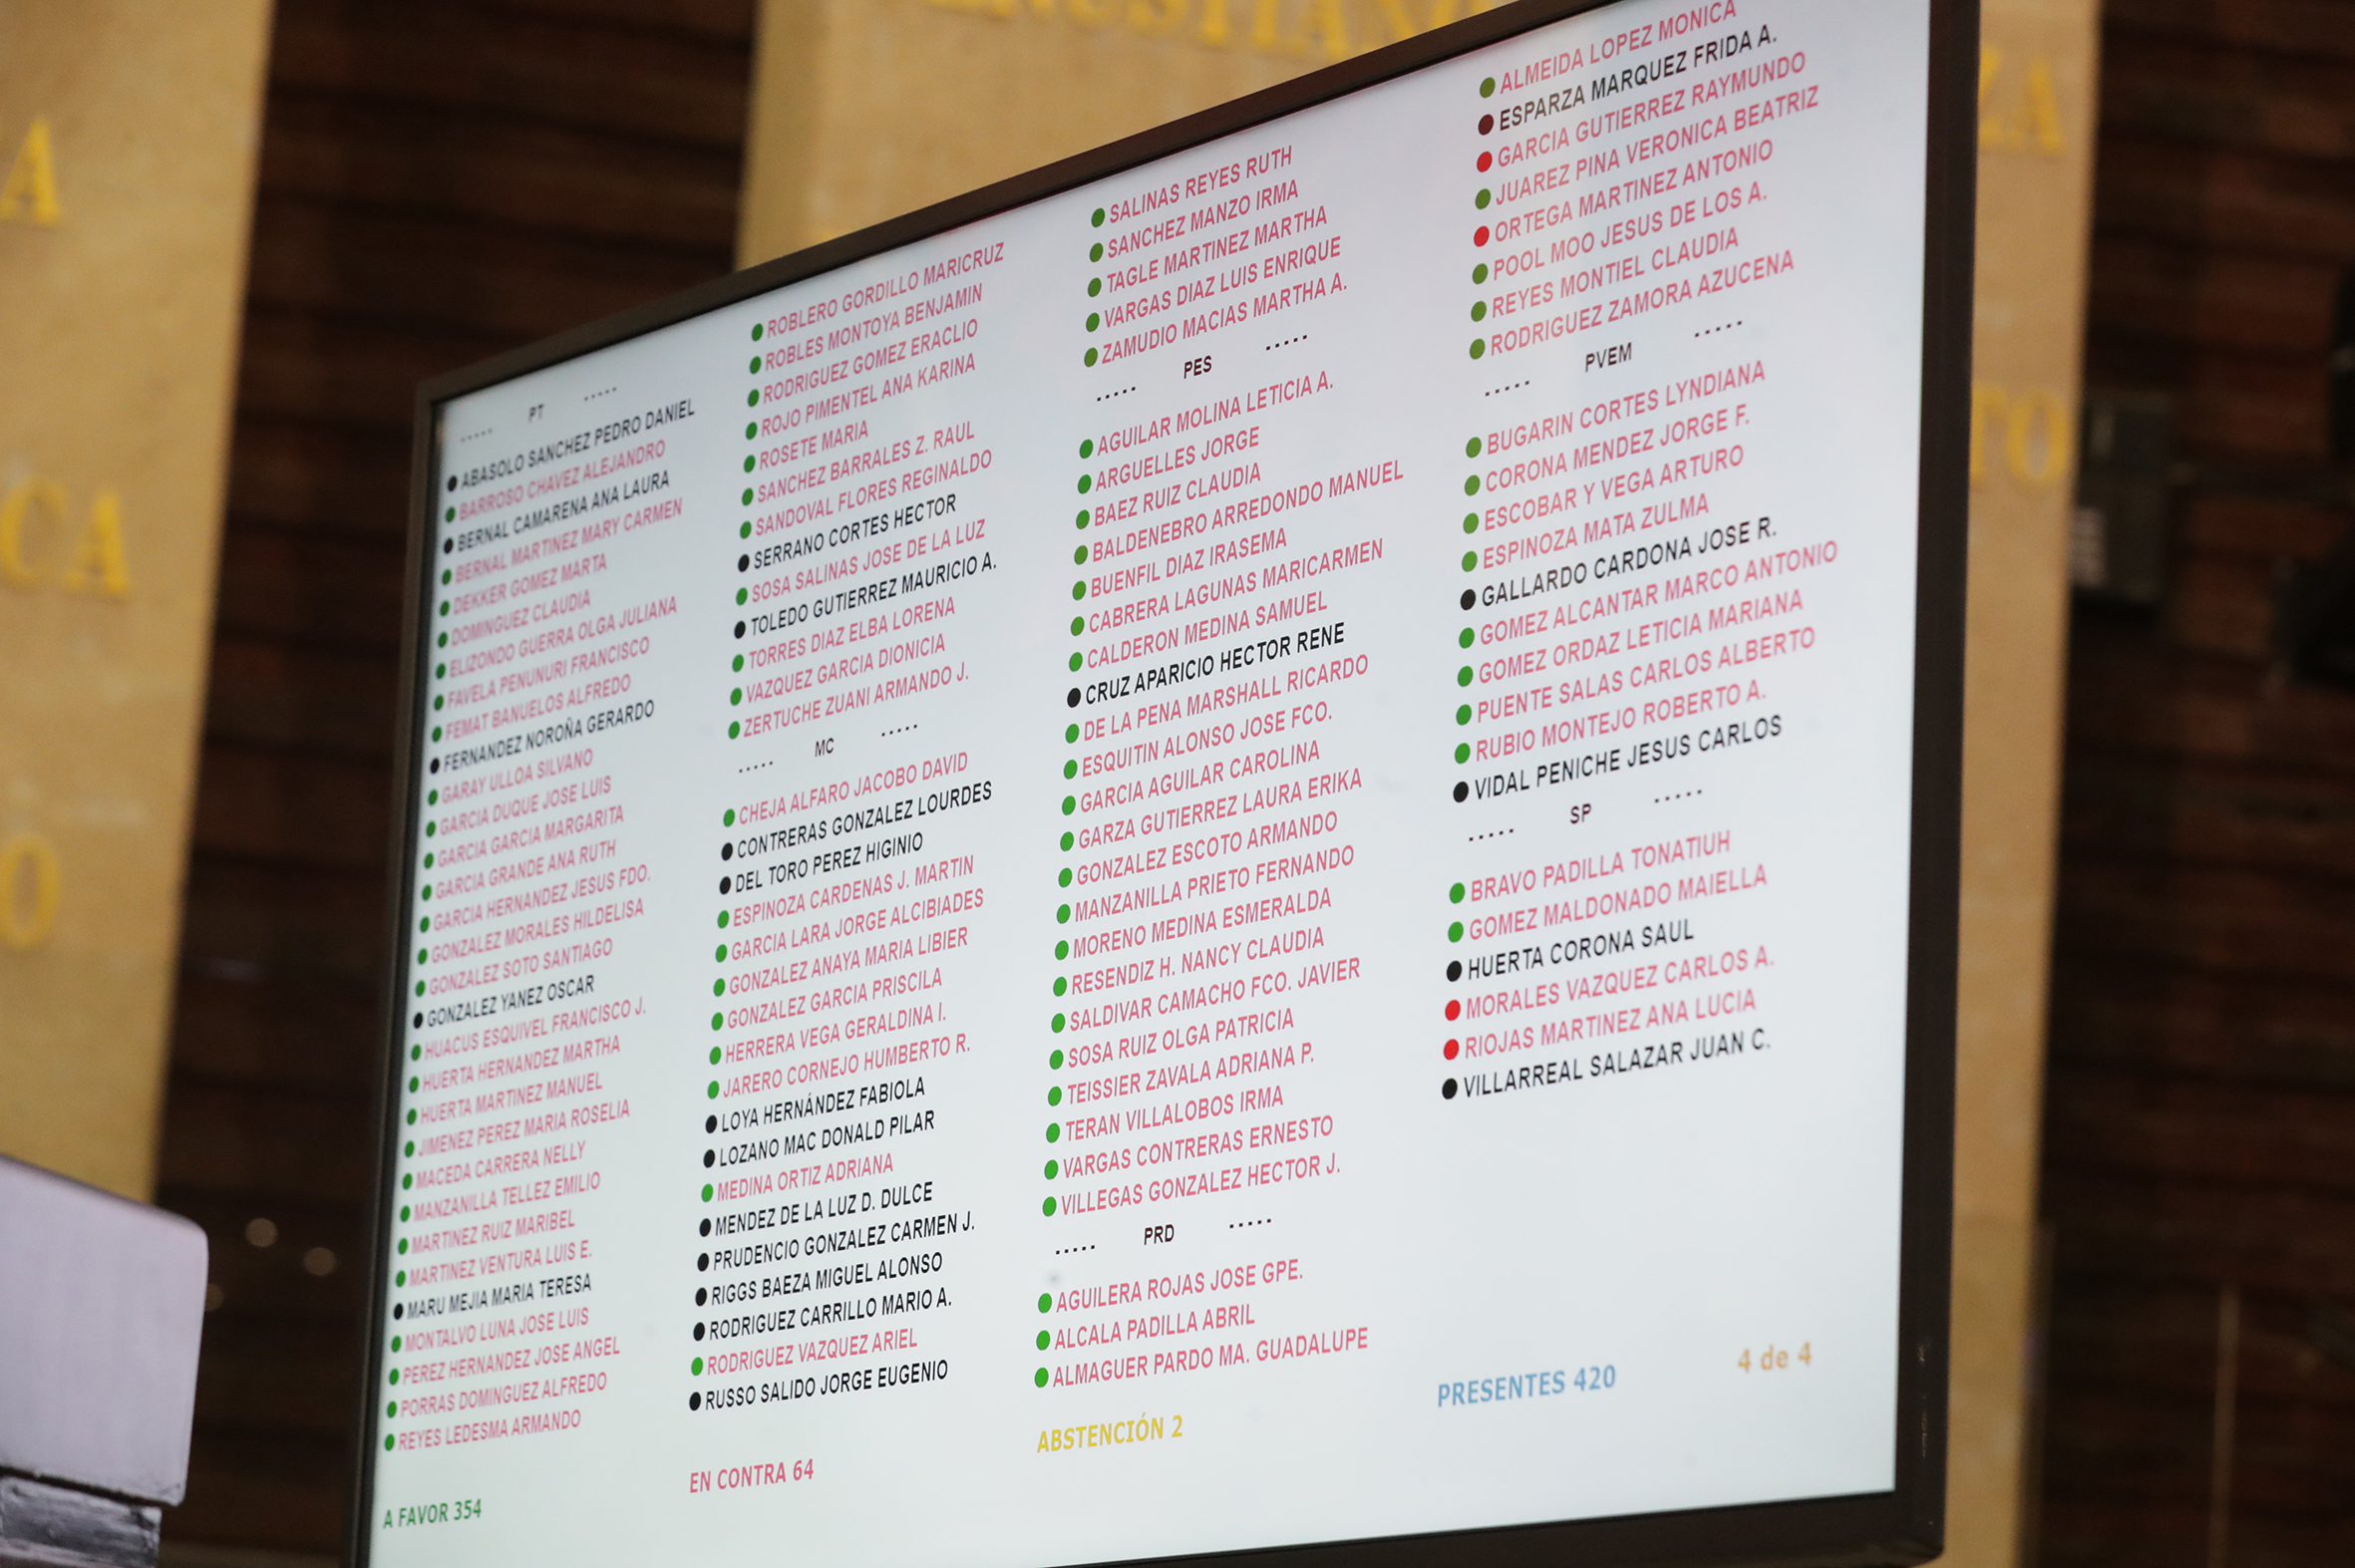 ----- PT -----
ABASOLO SANCHEZ PEDRO DANIEL
BARROSO CHAVEZ ALEJANDRO
BERNAL CAMARENA ANA LAURA
BERNAL MARTINEZ MARY CARMEN
DEKKER GOMEZ MARTA
DOMINGUEZ CLAUDIA
ELIZONDO GUERRA OLGA JULIANA
FAVELA PENUNURI FRANCISCO
FEMAT BANUELOS ALFREDO
FERNANDEZ NOROÑA GERARDO
GARAY ULLOA SILVANO
GARCIA DUQUE JOSE LUIS
GARCIA GARCIA MARGARITA
GARCIA GRANDE ANA RUTH
GARCIA HERNANDEZ JESUS FDO.
GONZALEZ MORALES HILDELISA
GONZALEZ SOTO SANTIAGO
GONZALEZ YANEZ OSCAR
HUACUS ESQUIVEL FRANCISCO J.
HUERTA HERNANDEZ MARTHA
HUERTA MARTINEZ MANUEL
JIMENEZ PEREZ MARIA ROSELIA
MACEDA CARRERA NELLY
MANZANILLA TELLEZ EMILIO
MARTINEZ RUIZ MARIBEL
MARTINEZ VENTURA LUIS E.
MARU MEJIA MARIA TERESA
MONTALVO LUNA JOSE LUIS
PEREZ HERNANDEZ JOSE ANGEL
PORRAS DOMINGUEZ ALFREDO
REYES LEDESMA ARMANDO
ROBLERO GORDILLO MARICRUZ
ROBLES MONTOYA BENJAMIN
RODRIGUEZ GOMEZ ERACLIO
ROJO PIMENTEL ANA KARINA
ROSETE MARIA
SANCHEZ BARRALES Z. RAUL
SANDOVAL FLORES REGINALDO
SERRANO CORTES HECTOR
SOSA SALINAS JOSE DE LA LUZ
TOLEDO GUTIERREZ MAURICIO A.
TORRES DIAZ ELBA LORENA
VAZQUEZ GARCIA DIONICIA
ZERTUCHE ZUANI ARMANDO J.
----- MC -----
CHEJA ALFARO JACOBO DAVID
CONTRERAS GONZALEZ LOURDES
DEL TORO PEREZ HIGINIO
ESPINOZA CARDENAS J. MARTIN
GARCIA LARA JORGE ALCIBIADES
GONZALEZ ANAYA MARIA LIBIER
GONZALEZ GARCIA PRISCILA
HERRERA VEGA GERALDINA I.
JARERO CORNEJO HUMBERTO R.
LOYA HERNÁNDEZ FABIOLA
LOZANO MAC DONALD PILAR
MEDINA ORTIZ ADRIANA
MENDEZ DE LA LUZ D. DULCE
PRUDENCIO GONZALEZ CARMEN J.
RIGGS BAEZA MIGUEL ALONSO
RODRIGUEZ CARRILLO MARIO A.
RODRIGUEZ VAZQUEZ ARIEL
RUSSO SALIDO JORGE EUGENIO
SALINAS REYES RUTH
SANCHEZ MANZO IRMA
TAGLE MARTINEZ MARTHA
VARGAS DIAZ LUIS ENRIQUE
ZAMUDIO MACIAS MARTHA A.
----- PES -----
AGUILAR MOLINA LETICIA A.
ARGUELLES JORGE
BAEZ RUIZ CLAUDIA
BALDENEBRO ARREDONDO MANUEL
BUENFIL DIAZ IRASEMA
CABRERA LAGUNAS MARICARMEN
CALDERON MEDINA SAMUEL
CRUZ APARICIO HECTOR RENE
DE LA PENA MARSHALL RICARDO
ESQUITIN ALONSO JOSE FCO.
GARCIA AGUILAR CAROLINA
GARZA GUTIERREZ LAURA ERIKA
GONZALEZ ESCOTO ARMANDO
MANZANILLA PRIETO FERNANDO
MORENO MEDINA ESMERALDA
RESENDIZ H. NANCY CLAUDIA
SALDIVAR CAMACHO FCO. JAVIER
SOSA RUIZ OLGA PATRICIA
TEISSIER ZAVALA ADRIANA P.
TERAN VILLALOBOS IRMA
VARGAS CONTRERAS ERNESTO
VILLEGAS GONZALEZ HECTOR J.
----- PRD -----
AGUILERA ROJAS JOSE GPE.
ALCALA PADILLA ABRIL
ALMAGUER PARDO MA. GUADALUPE
ALMEIDA LOPEZ MONICA
ESPARZA MARQUEZ FRIDA A.
GARCIA GUTIERREZ RAYMUNDO
JUAREZ PINA VERONICA BEATRIZ
ORTEGA MARTINEZ ANTONIO
POOL MOO JESUS DE LOS A.
REYES MONTIEL CLAUDIA
RODRIGUEZ ZAMORA AZUCENA
----- PVEM -----
BUGARIN CORTES LYNDIANA
CORONA MENDEZ JORGE F.
ESCOBAR Y VEGA ARTURO
ESPINOZA MATA ZULMA
GALLARDO CARDONA JOSE R.
GOMEZ ALCANTAR MARCO ANTONIO
GOMEZ ORDAZ LETICIA MARIANA
PUENTE SALAS CARLOS ALBERTO
RUBIO MONTEJO ROBERTO A.
VIDAL PENICHE JESUS CARLOS
----- SP -----
BRAVO PADILLA TONATIUH
GOMEZ MALDONADO MAIELLA
HUERTA CORONA SAUL
MORALES VAZQUEZ CARLOS A.
RIOJAS MARTINEZ ANA LUCIA
VILLARREAL SALAZAR JUAN C.
A FAVOR 354
EN CONTRA 64
ABSTENCIÓN 2
PRESENTES 420
4 de 4